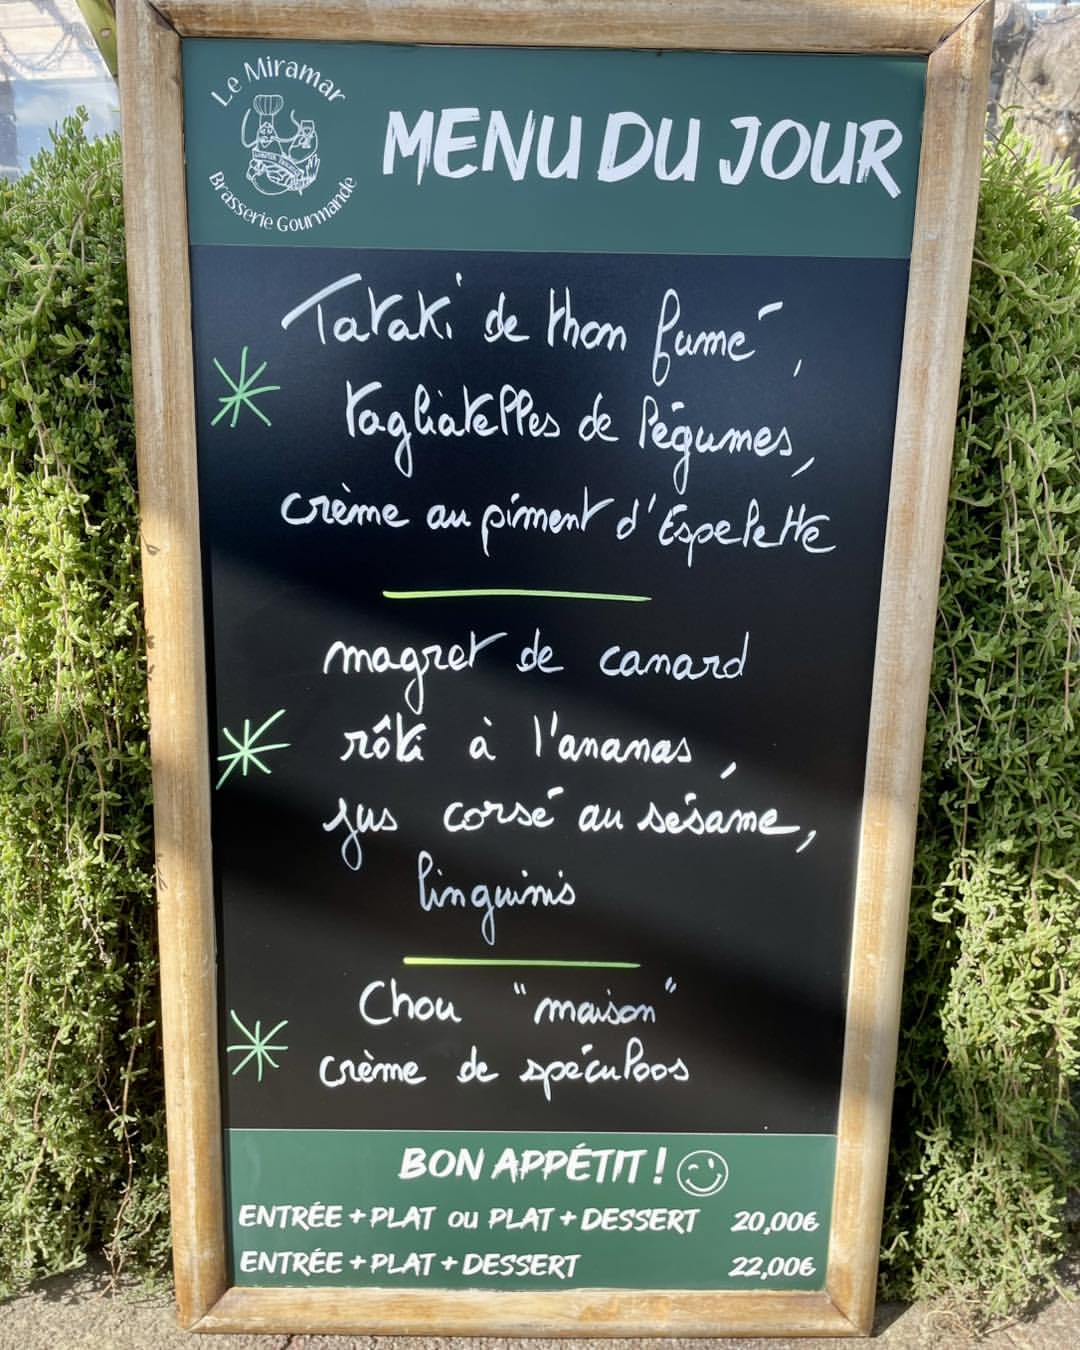 Le Miramar
Brasserie Gourmande
MENU DU JOUR
Tataki de thon fumé,
tagliatelles de légumes,
crème au piment d'Espelette
magret de canard
rôti à l'ananas,
jus corsé au sésame,
linguinis
Chou "maison"
crème de spéculoos
BON APPÉTIT !
ENTRÉE + PLAT ou PLAT + DESSERT 20,00€
ENTRÉE + PLAT + DESSERT 22,00€